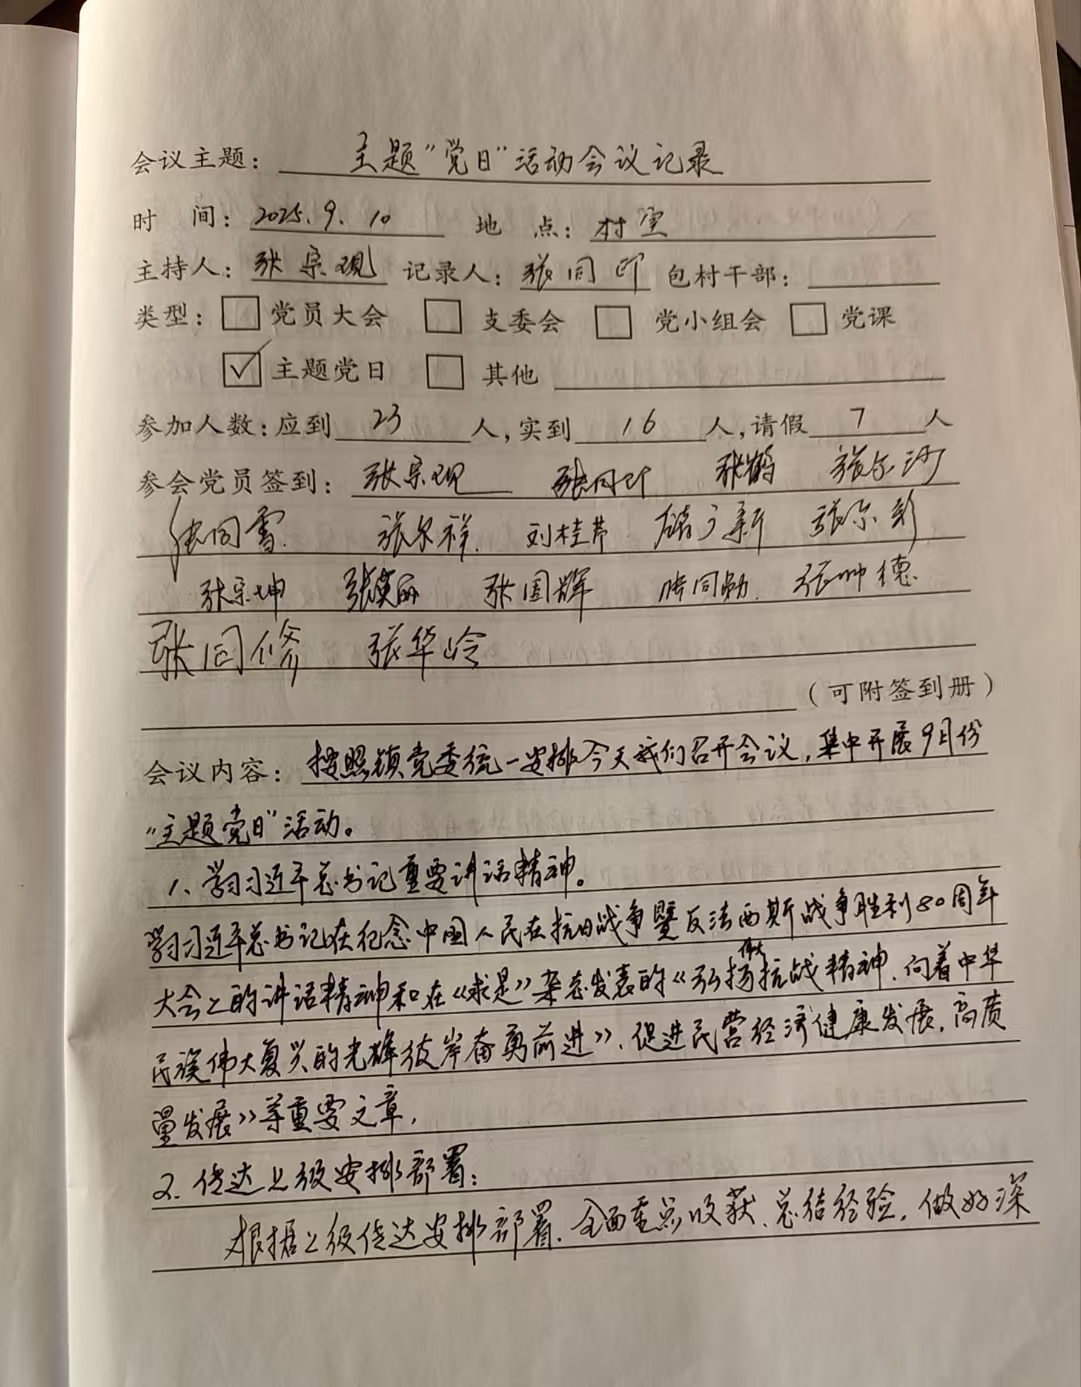 会议主题: 主题“党日”活动会议记录
时 间: 2025.9.10 地 点: 村室
主持人: 张宗观 记录人: 张同印 包村干部:
类型: □ 党员大会 □ 支委会 □ 党小组会 □ 党课
☑ 主题党日 □ 其他
参加人数:应到 23 人,实到 16 人,请假 7 人
参会党员签到: 张宗观 张同印 张鹤
张同雪 张尔祥 刘桂芹
张宗坤 张国辉 张帅德
张同修 张华岭
(可附签到册)
会议内容: 按照镇党委统一安排今天我们召开会议,集中开展9月份
“主题党日”活动。
1、学习习近平总书记重要讲话精神。
学习习近平总书记在纪念中国人民在抗日战争暨反法西斯战争胜利80周年
大会上的讲话精神和在《求是》杂志发表的《弘扬伟大抗战精神、向着中华
民族伟大复兴的光辉彼岸奋勇前进》、促进民营经济健康发展,高质
量发展》等重要文章,
2. 传达上级安排部署:
根据上级传达安排部署、全面重点收获、总结经验,做好深